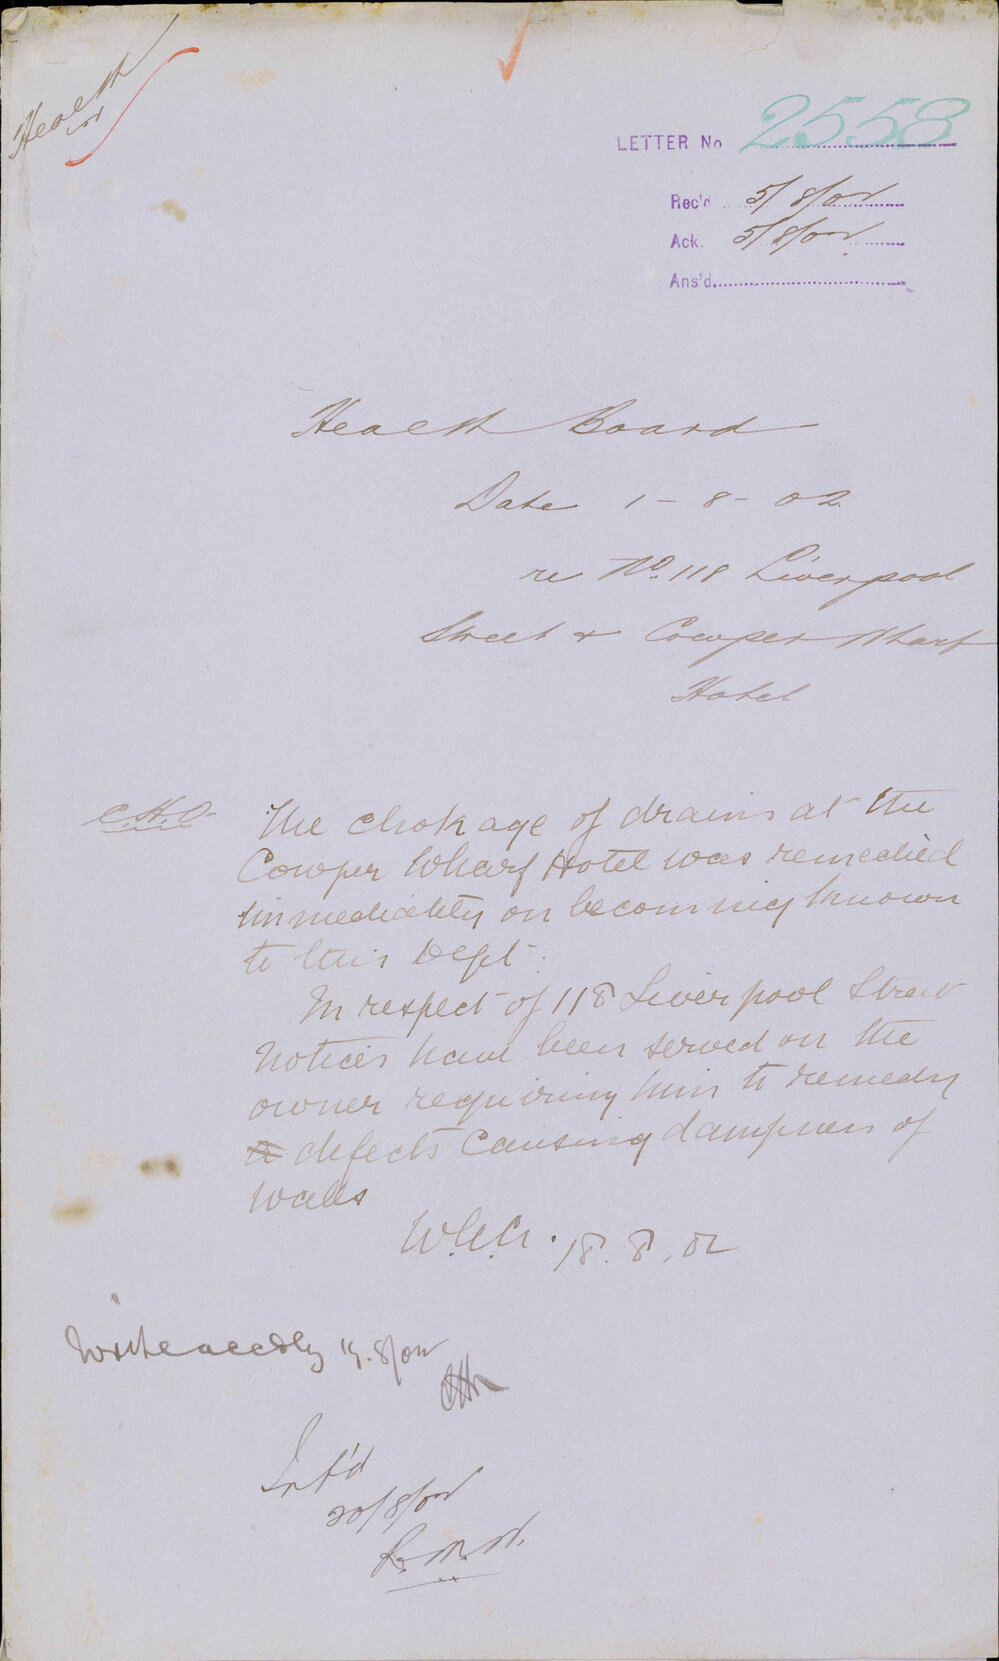 Health
LETTER No 2558
Rec'd 5/8/02
Ack. 5/8/02
Ans'd
Health Board
Date 1-8-02
re No. 118 Liverpool
Street & Cowper Wharf
Hotel
C.H.O.
The chokage of drains at the
Cowper Wharf Hotel was remedied
immediately on becoming known
to this Dept.
In respect of 118 Liverpool Street
notices have been served on the
owner requiring him to remedy
a defects causing dampness of
walls
18.8.02
Write accdly 19.8/02
Inf'd
20/8/02